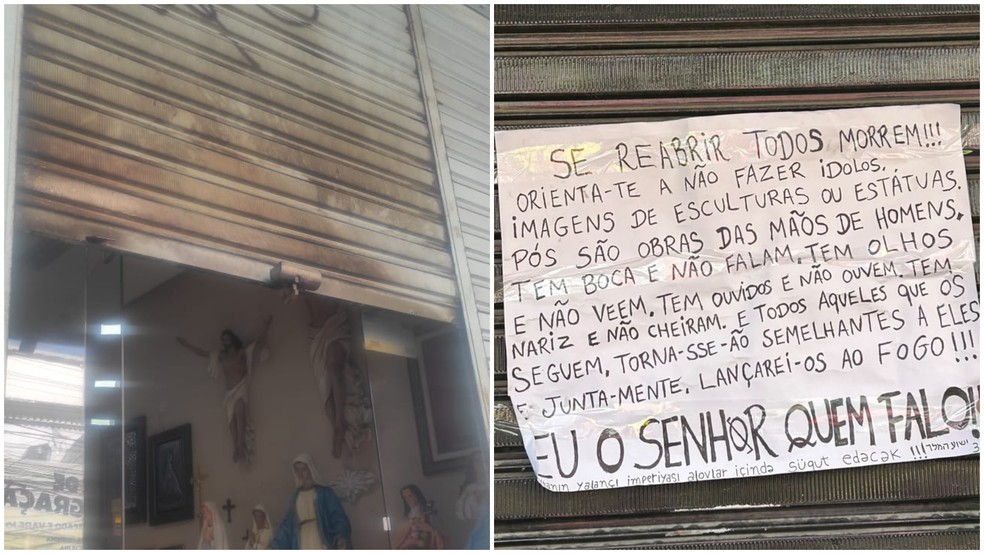 DE
GRAÇA
SE REABRIR TODOS MORREM!!!
ORIENTA-TE A NÃO FAZER ÍDOLOS,
IMAGENS DE ESCULTURAS OU ESTÁTUAS.
PÓS SÃO OBRAS DAS MÃOS DE HOMENS,
TEM BOCA E NÃO FALAM, TEM OLHOS
E NÃO VEEM. TEM OUVIDOS E NÃO OUVEM. TEM
NARIZ E NÃO CHEIRAM. E TODOS AQUELES QUE OS
SEGUEM, TORNA-SSE-ÃO SEMELHANTES A ELES
E JUNTA-MENTE, LANÇAREI-OS AO FOGO!!!
EU O SENHOR QUEM FALO!!
yalançı imperiyası alovlar içində süqut edəcək !!!